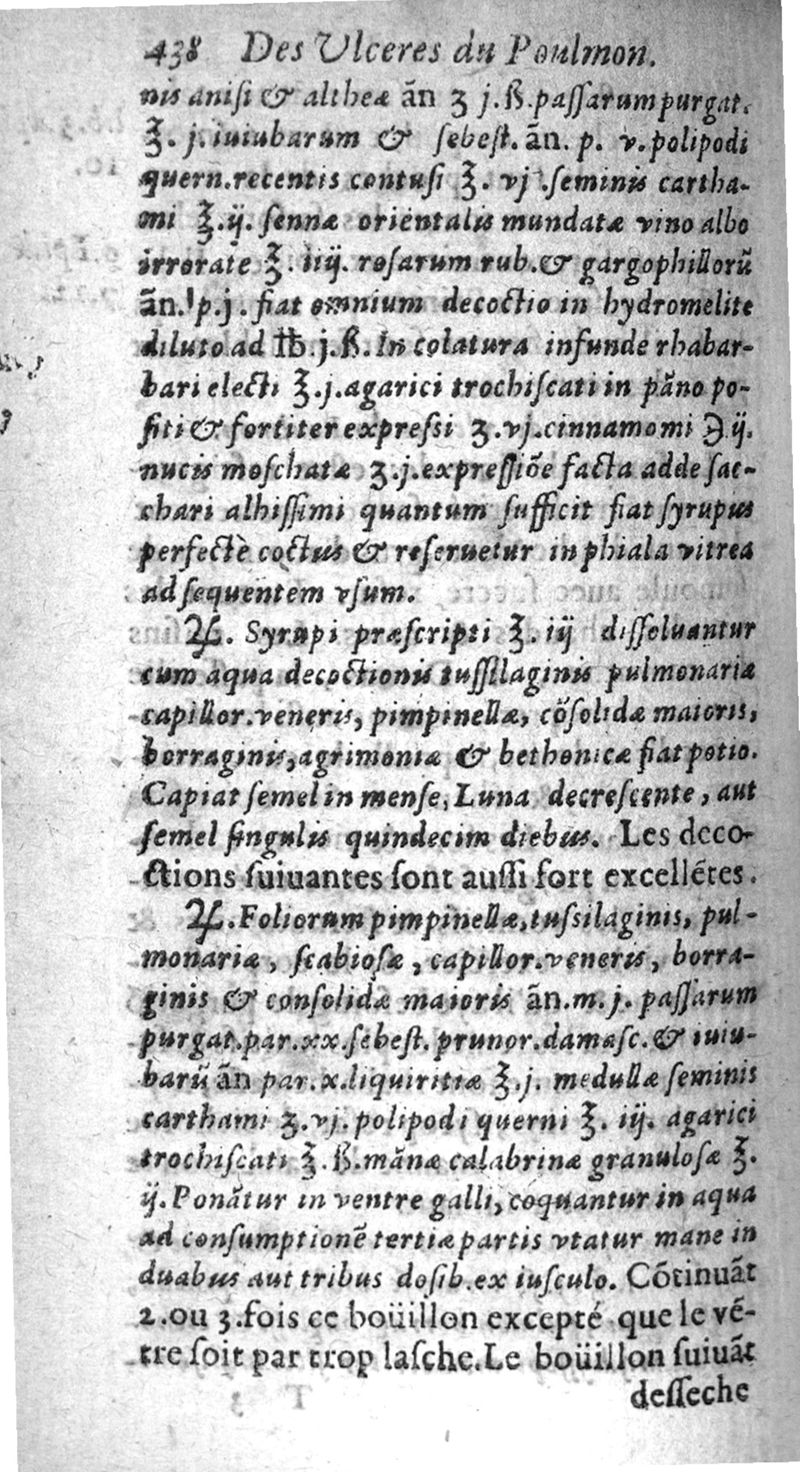 438 Des Vlceres du Poulmon.
nis anisi & altheæ ãn ʒ j. ß. passarum purgat.
℥. j. iuiubarum & sebest. ãn. p. v. polipodi
quern. recentis contusi ℥. vj. seminis cartha-
mi ℥. ij. sennæ orientalis mundatæ vino albo
irrorate ℥. iiij. rosarum rub. & gargophillorũ
ãn. p. j. fiat omnium decoctio in hydromelite
diluto ad ℔. j. ß. In colatura infunde rhabar-
bari electi ℥. j. agarici trochiscati in pãno po-
siti & fortiter expressi ʒ. vj. cinnamomi ℈ ij.
nucis moschatæ ʒ. j. expressiõe facta adde sac-
chari alhissimi quantum sufficit fiat syrupus
perfectè coctus & reseruetur in phiala vitrea
ad sequentem vsum.
♃. Syrupi præscripti ℥. iij dissoluantur
cum aqua decoctionis tussilaginis pulmonariæ
capillor. veneris, pimpinellæ, cõsolidæ maioris,
borraginis, agrimoniæ & bethonicæ fiat potio.
Capiat semel in mense, Luna decrescente, aut
semel singulis quindecim diebus. Les deco-
ctions suiuantes sont aussi fort excellẽtes.
♃. Foliorum pimpinellæ, tussilaginis, pul-
monariæ, scabiosæ, capillor. veneris, borra-
ginis & consolidæ maioris ãn. m. j. passarum
purgat. par. xx. sebest. prunor. damasc. & iuiu-
barũ ãn par. x. liquiritiæ ℥. j. medullæ seminis
carthami ʒ. vj. polipodi querni ℥. iij. agarici
trochiscati ℥. ß. mãnæ calabrinæ granulosæ ℥.
ij. Ponãtur in ventre galli, coquantur in aqua
ad consumptionẽ tertiæ partis vtatur mane in
duabus aut tribus dosib. ex iusculo. Cõtinuãt
2. ou 3. fois ce boüillon excepté que le vẽ-
tre soit par trop lasche. Le boüillon suiuãt
desseche